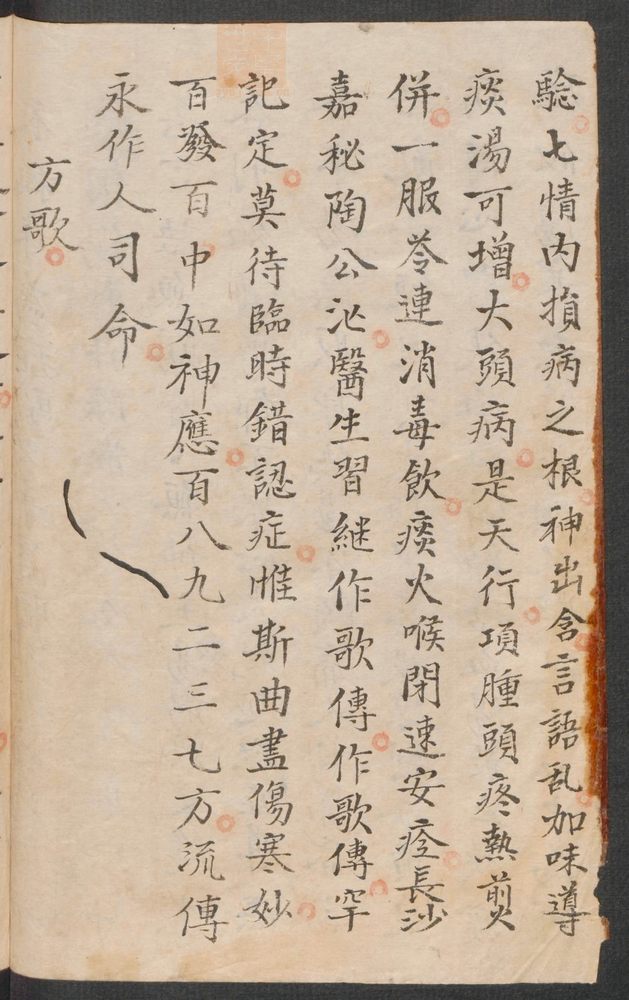 驗七情内損病之根神出舍言語乱加味導
痰湯可增大頭病是天行項腫頭疼熱煎
併一服芩連消毒飲痰火喉閉速安痊長沙
嘉秘陶公沁醫生習継作歌傳作歌傳罕
記定莫待臨時錯認症惟斯曲盡傷寒妙
百發百中如神應百八九二三七方流傳
永作人司命
方歌